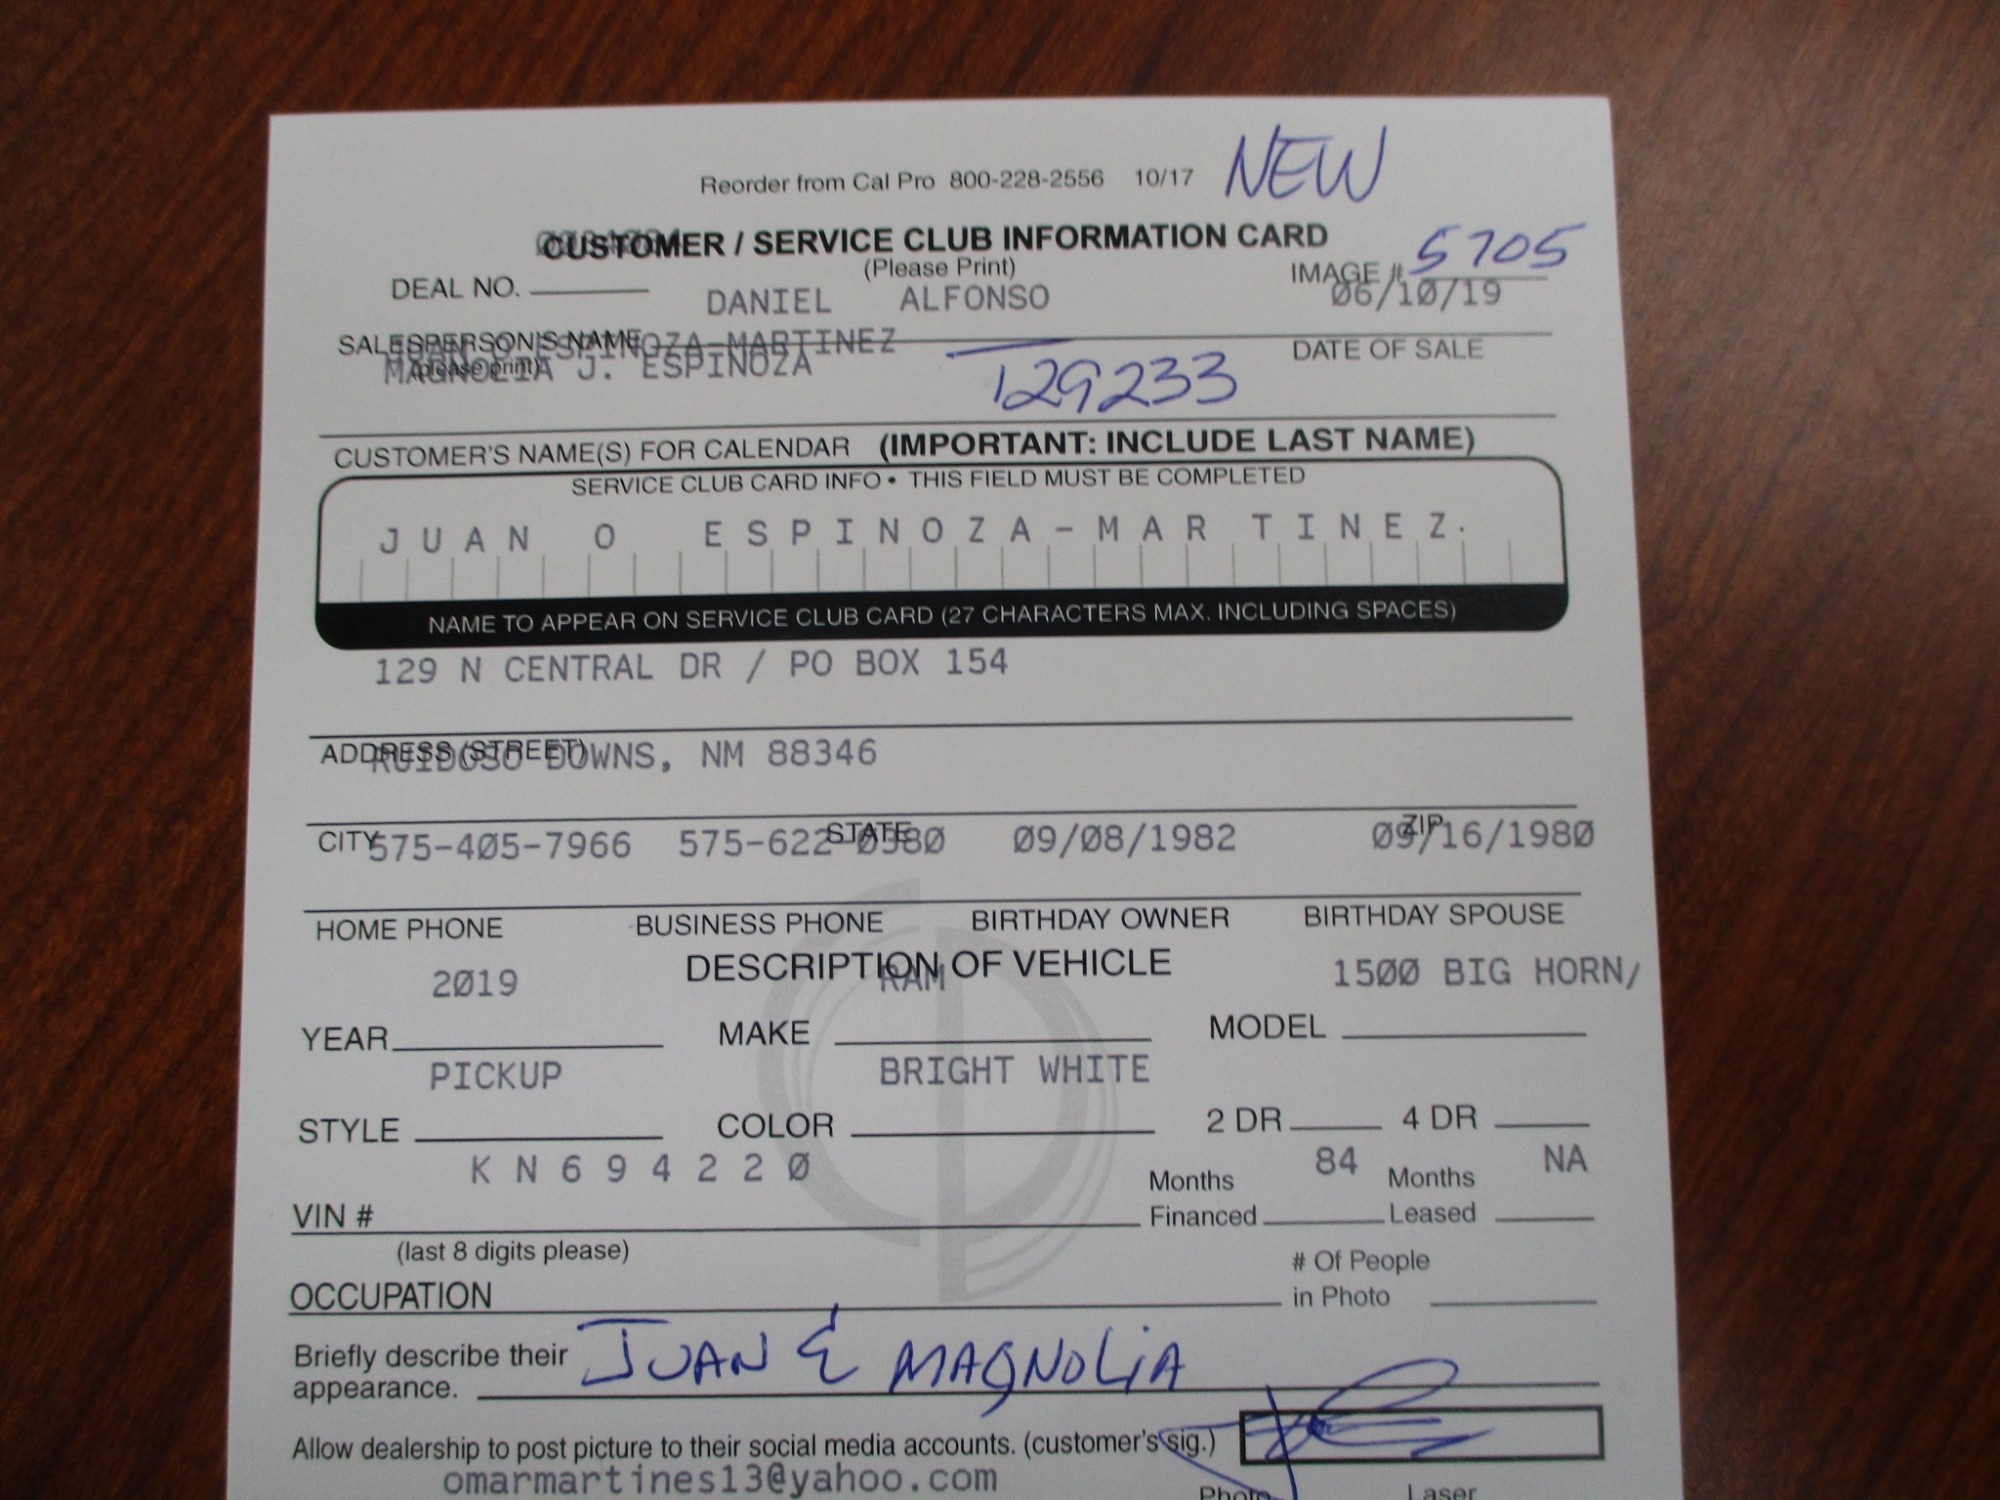 Reorder from Cal Pro 800-228-2556 10/17 NEW
CUSTOMER / SERVICE CLUB INFORMATION CARD
(Please Print)
DEAL NO. IMAGE # 5705
DANIEL ALFONSO 06/10/19
SALESPERSON'S NAME DATE OF SALE
(please print)
JUAN O ESPINOZA-MARTINEZ
MAGNOLIA J. ESPINOZA
129233
CUSTOMER'S NAME(S) FOR CALENDAR (IMPORTANT: INCLUDE LAST NAME)
SERVICE CLUB CARD INFO • THIS FIELD MUST BE COMPLETED
JUAN O ESPINOZA-MARTINEZ.
NAME TO APPEAR ON SERVICE CLUB CARD (27 CHARACTERS MAX. INCLUDING SPACES)
129 N CENTRAL DR / PO BOX 154
ADDRESS (STREET)
RUIDOSO DOWNS, NM 88346
CITY STATE ZIP
575-405-7966 575-622-0580 09/08/1982 09/16/1980
HOME PHONE BUSINESS PHONE BIRTHDAY OWNER BIRTHDAY SPOUSE
DESCRIPTION OF VEHICLE
2019 RAM 1500 BIG HORN/
YEAR MAKE MODEL
PICKUP BRIGHT WHITE
STYLE COLOR 2 DR 4 DR
KN694220 84 NA
VIN # Months Financed Months Leased
(last 8 digits please)
OCCUPATION # Of People in Photo
Briefly describe their JUAN & MAGNOLIA
appearance.
Allow dealership to post picture to their social media accounts. (customer's sig.)
omarmartines13@yahoo.com
Photo Laser